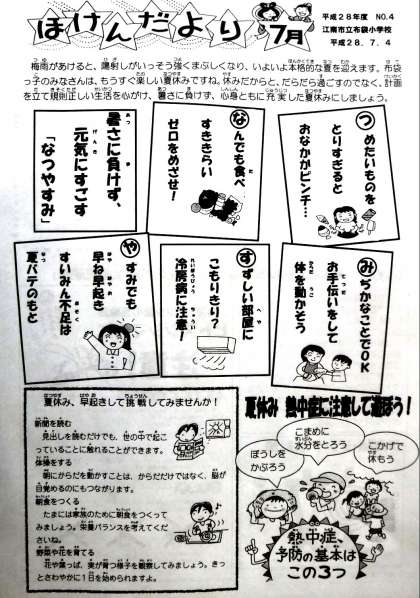 ほけんだより
7月
平成28年度 NO.4
江南市立布袋小学校
平成28.7.4
梅雨があけると、陽射しがいっそう強くまぶしくなり、いよいよ本格的な夏を迎えます。布袋
っ子のみなさんは、もうすぐ楽しい夏休みですね。休みだからと、だらだら過ごすのでなく、計画
を立て規則正しい生活を心がけ、暑さに負けず、心身ともに充実した夏休みにしましょう。
暑さに負けず、
元気にすごす
「なつやすみ」
なんでも食べ
すききらい
ゼロをめざせ!
つめたいものを
とりすぎると
おなかがピンチ…
やすみでも
早ね早起き
すいみん不足は
夏バテのもと
すずしい部屋に
こもりきり?
冷房病に注意!
みぢかなことでOK
お手伝いをして
体を動かそう
夏休み、早起きして挑戦してみませんか!
新聞を読む
見出しを読むだけでも、世の中で起こ
っていることに触れることができます。
体操をする
朝にからだを動かすことは、からだだけではなく、脳が
目覚めるのにもつながります。
朝食をつくる
たまには家族のために朝食をつくって
みましょう。栄養バランスを考えてくだ
さいね。
野菜や花を育てる
花や葉っぱ、実が育つ様子を観察してみましょう。きっ
とさわやかに1日を始められますよ。
夏休み 熱中症に注意して遊ぼう!
ぼうしを
かぶろう
こまめに
水分をとろう
こかげで
休もう
熱中症、
予防の基本は
この3つ